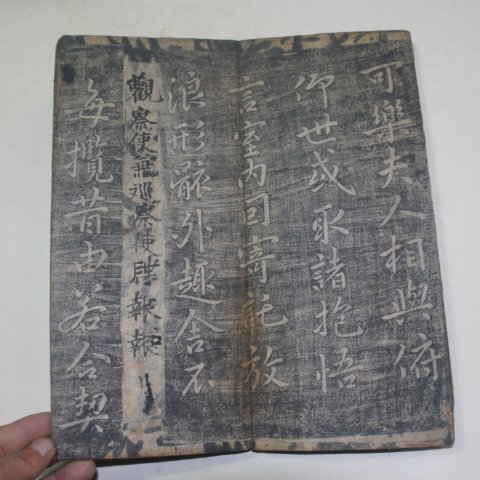 可樂夫人相與俯
仰世或取諸抱悟
言室內司寄託放
浪形骸外趣舍不
觀察使兼巡察使牒報報
每攬昔由若合契